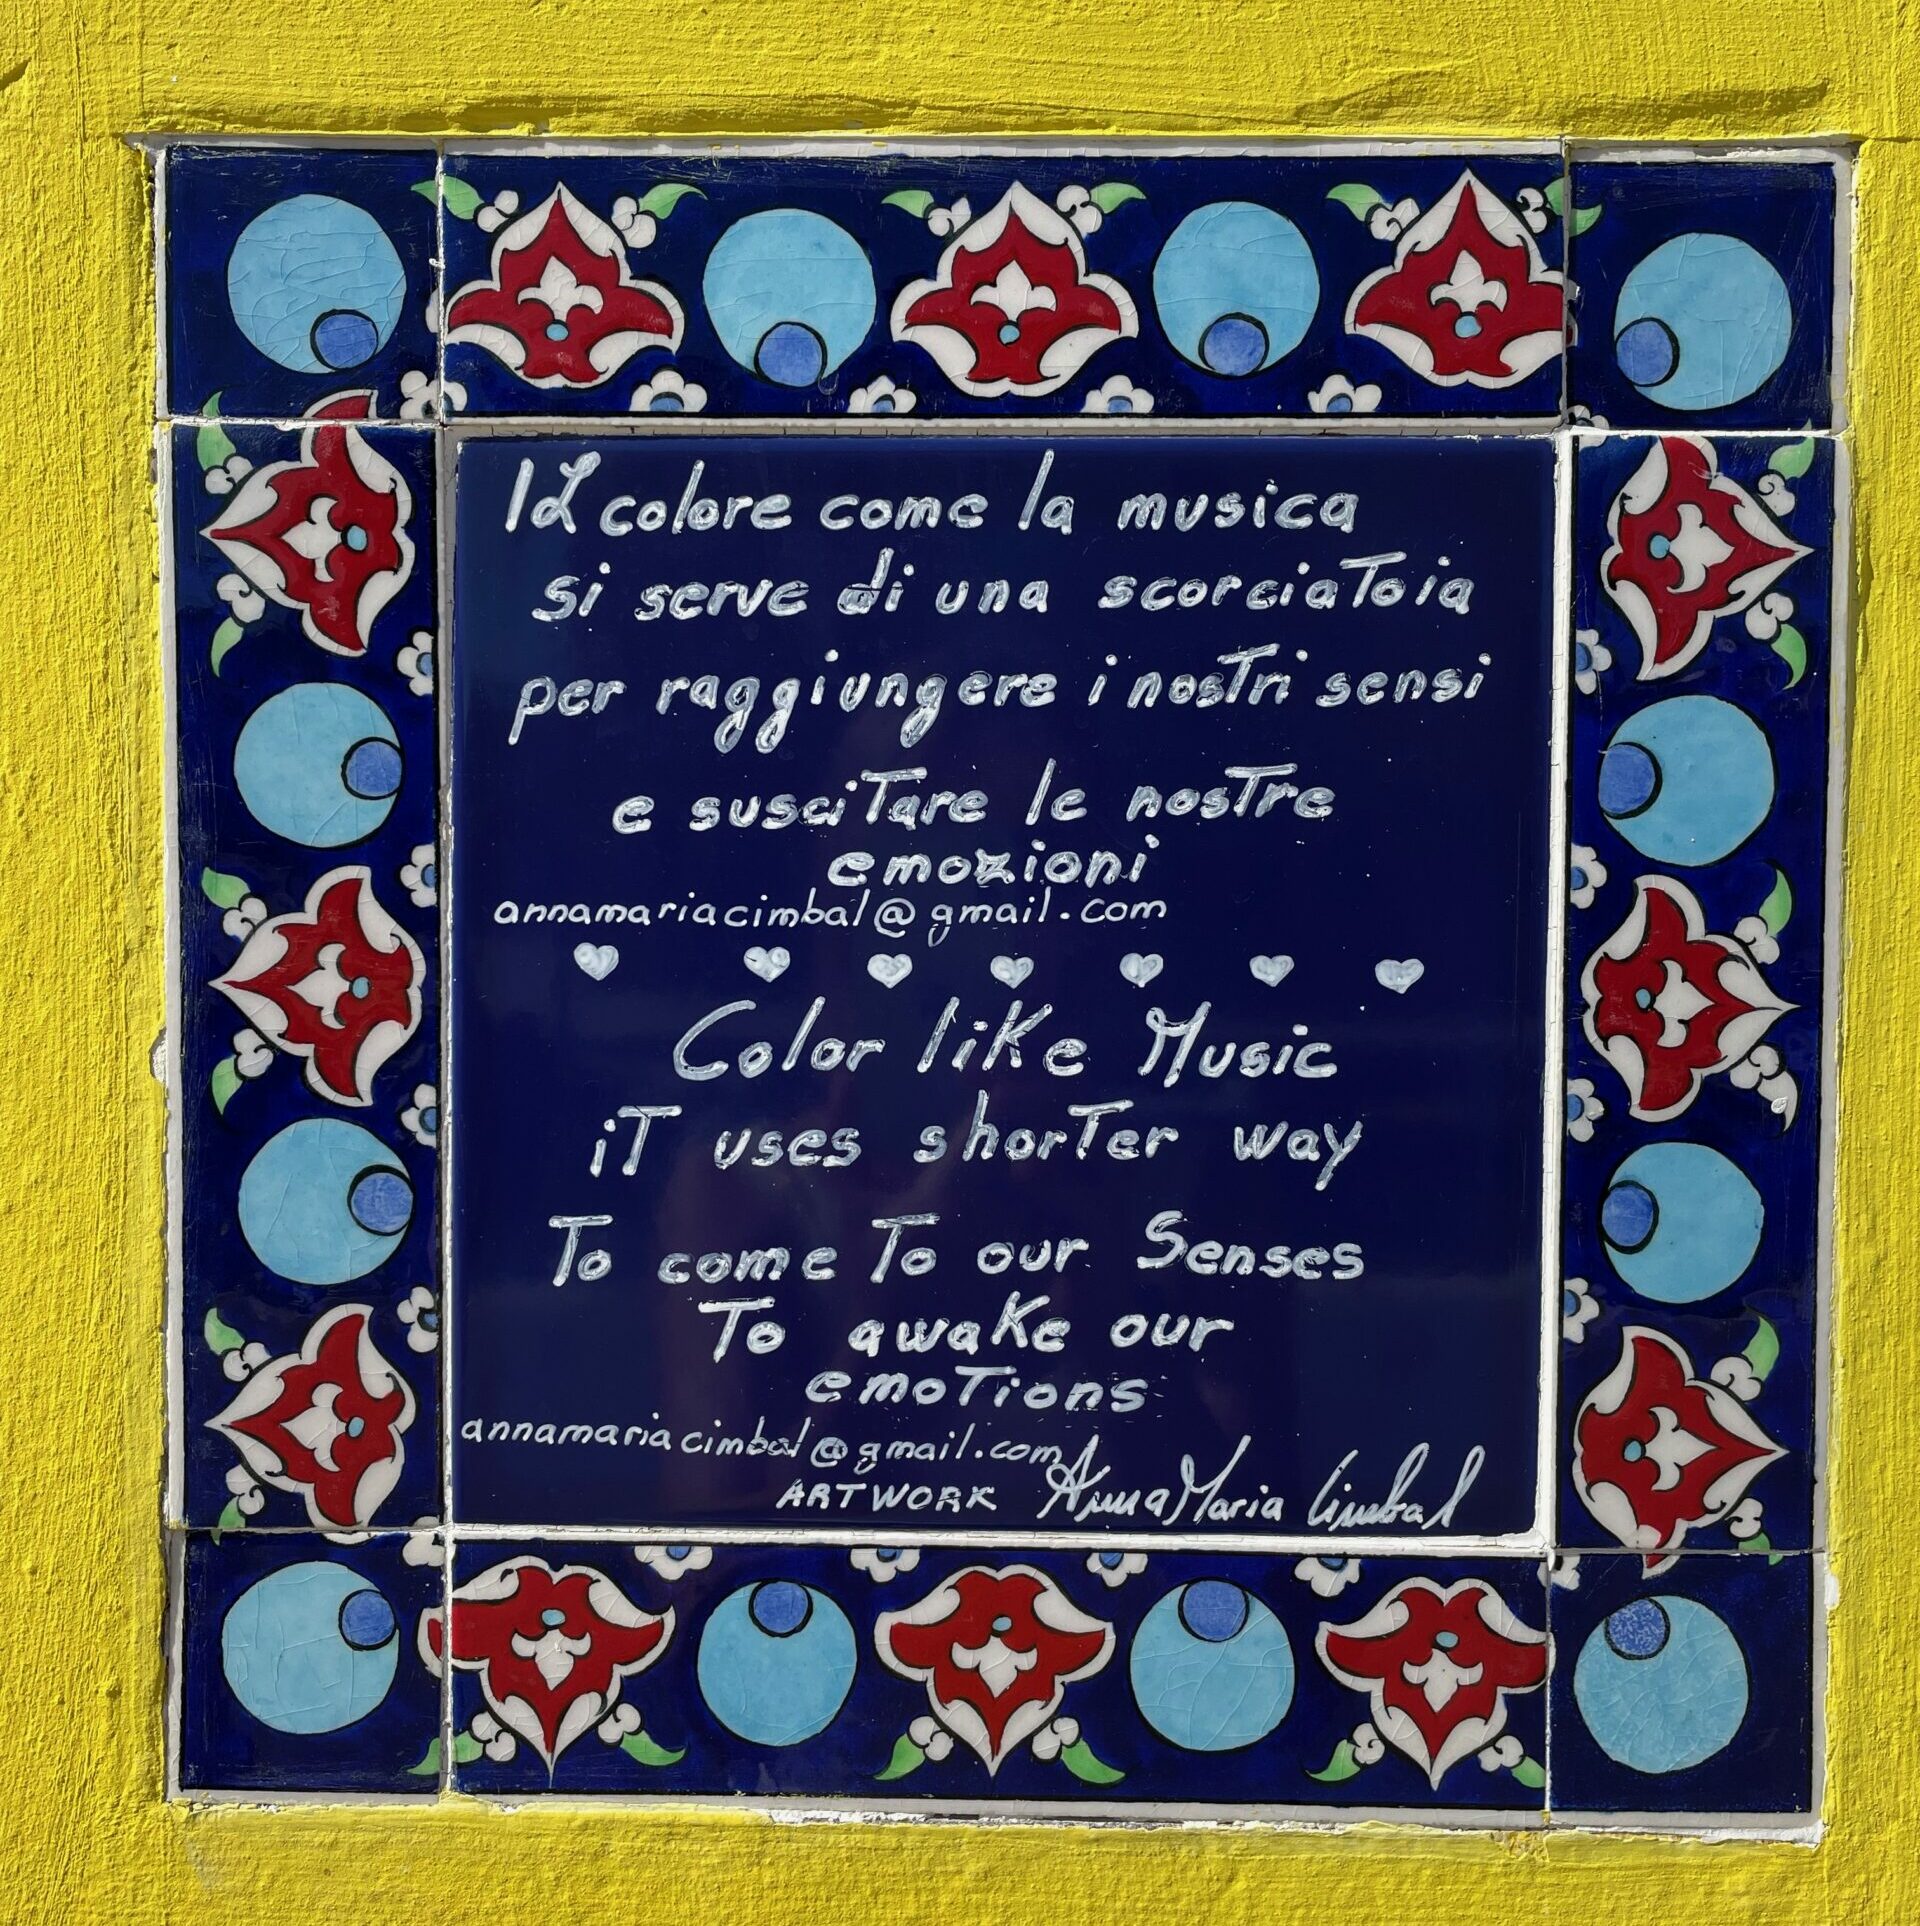 Il colore come la musica
si serve di una scorciatoia
per raggiungere i nostri sensi
e suscitare le nostre
emozioni
annamariacimbal@gmail.com
Color like Music
it uses shorter way
To come To our Senses
To awake our
emotions
annamariacimbal@gmail.com
ARTWORK AnnaMaria Cimbal